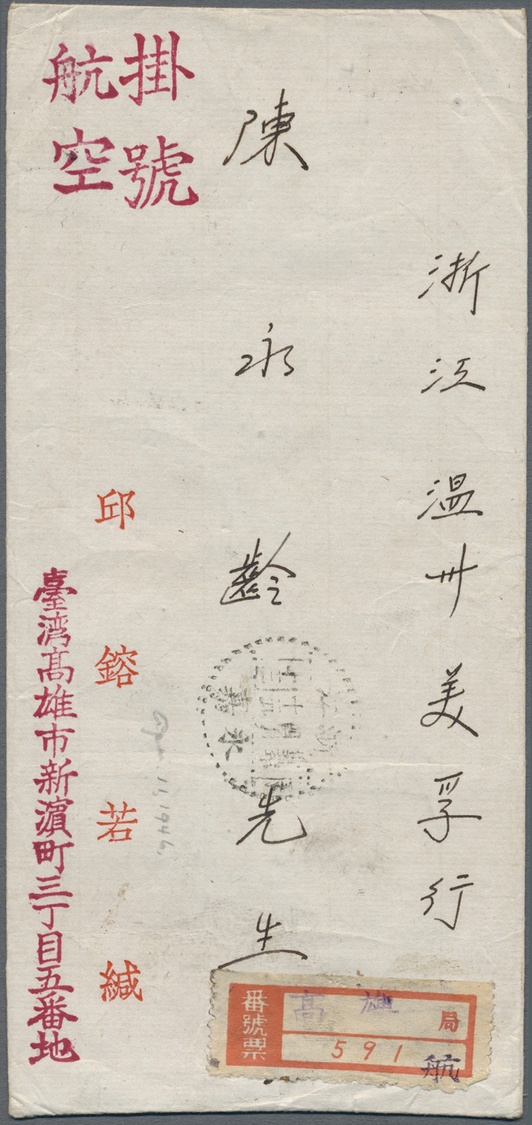 浙江温州美孚行
陳永齡先生
掛號
航空
邱鎔若緘
臺湾高雄市新濵町三丁目五番地
番號票
高雄局
591
航
1, 1946